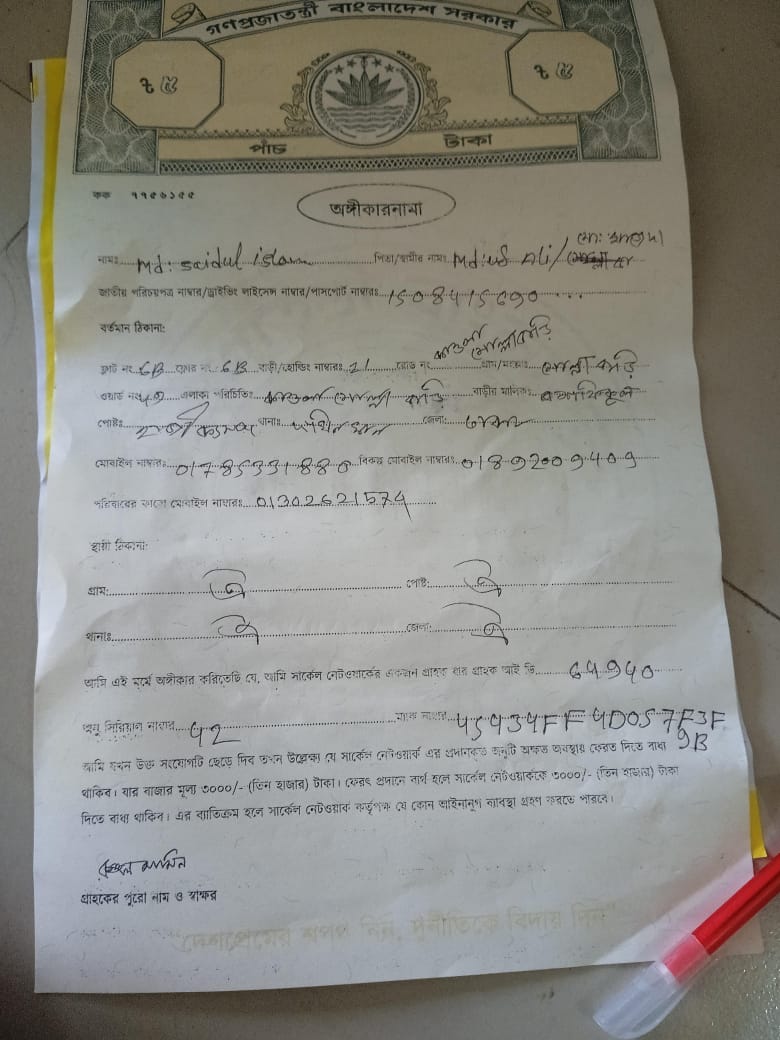 গণপ্রজাতন্ত্রী বাংলাদেশ সরকার
৳ ৫ ৳ ৫
পাঁচ টাকা
কক ৭৭৫৬১৫৫
অঙ্গীকারনামা
নামঃ Md: Saidul islam পিতা/স্বামীর নামঃ Md: Ali/
জাতীয় পরিচয়পত্র নাম্বার/ড্রাইভিং লাইসেন্স নাম্বার/পাসপোর্ট নাম্বারঃ 1508415690
বর্তমান ঠিকানা:
ফ্লাট নং 6B ফ্লোর নং 6B বাড়ী/হোল্ডিং নাম্বারঃ 21 রোড নং কাওলা মোল্লাবাড়ি গ্রাম/মহল্লাঃ মোল্লা বাড়ি
ওয়ার্ড নং 49 এলাকা পরিচিতিঃ কাওলা মোল্লা বাড়ি বাড়ীর মালিকঃ
পোষ্টঃ থানাঃ জেলা: ঢাকা
মোবাইল নাম্বারঃ 01785331880 বিকল্প মোবাইল নাম্বারঃ 01892009409
পরিবারের কারো মোবাইল নাম্বারঃ 01302621574
স্থায়ী ঠিকানা:
গ্রাম: ঐ পোষ্ট: ঐ
থানাঃ ঐ জেলা: ঐ
আমি এই মর্মে অঙ্গীকার করিতেছি যে, আমি সার্কেল নেটওয়ার্কের একজন গ্রাহক যার গ্রাহক আই ডি 64940
অনু সিরিয়াল নাম্বার 42 ম্যাক নাম্বার 45434FF4D057F3F
9B
আমি যখন উক্ত সংযোগটি ছেড়ে দিব তখন উল্লেখ্য যে সার্কেল নেটওয়ার্ক এর প্রদানকৃত অনুটি অক্ষত অবস্থায় ফেরত দিতে বাধ্য
থাকিব। যার বাজার মূল্য ৩০০০/- (তিন হাজার) টাকা। ফেরৎ প্রদানে ব্যর্থ হলে সার্কেল নেটওয়ার্ককে ৩০০০/- (তিন হাজার) টাকা
দিতে বাধ্য থাকিব। এর ব্যাতিক্রম হলে সার্কেল নেটওয়ার্ক কর্তৃপক্ষ যে কোন আইনানুগ ব্যাবস্থা গ্রহণ করতে পারবে।
গ্রাহকের পুরো নাম ও স্বাক্ষর
"দেশপ্রেমের শপথ নিন, দুর্নীতিকে বিদায় দিন"